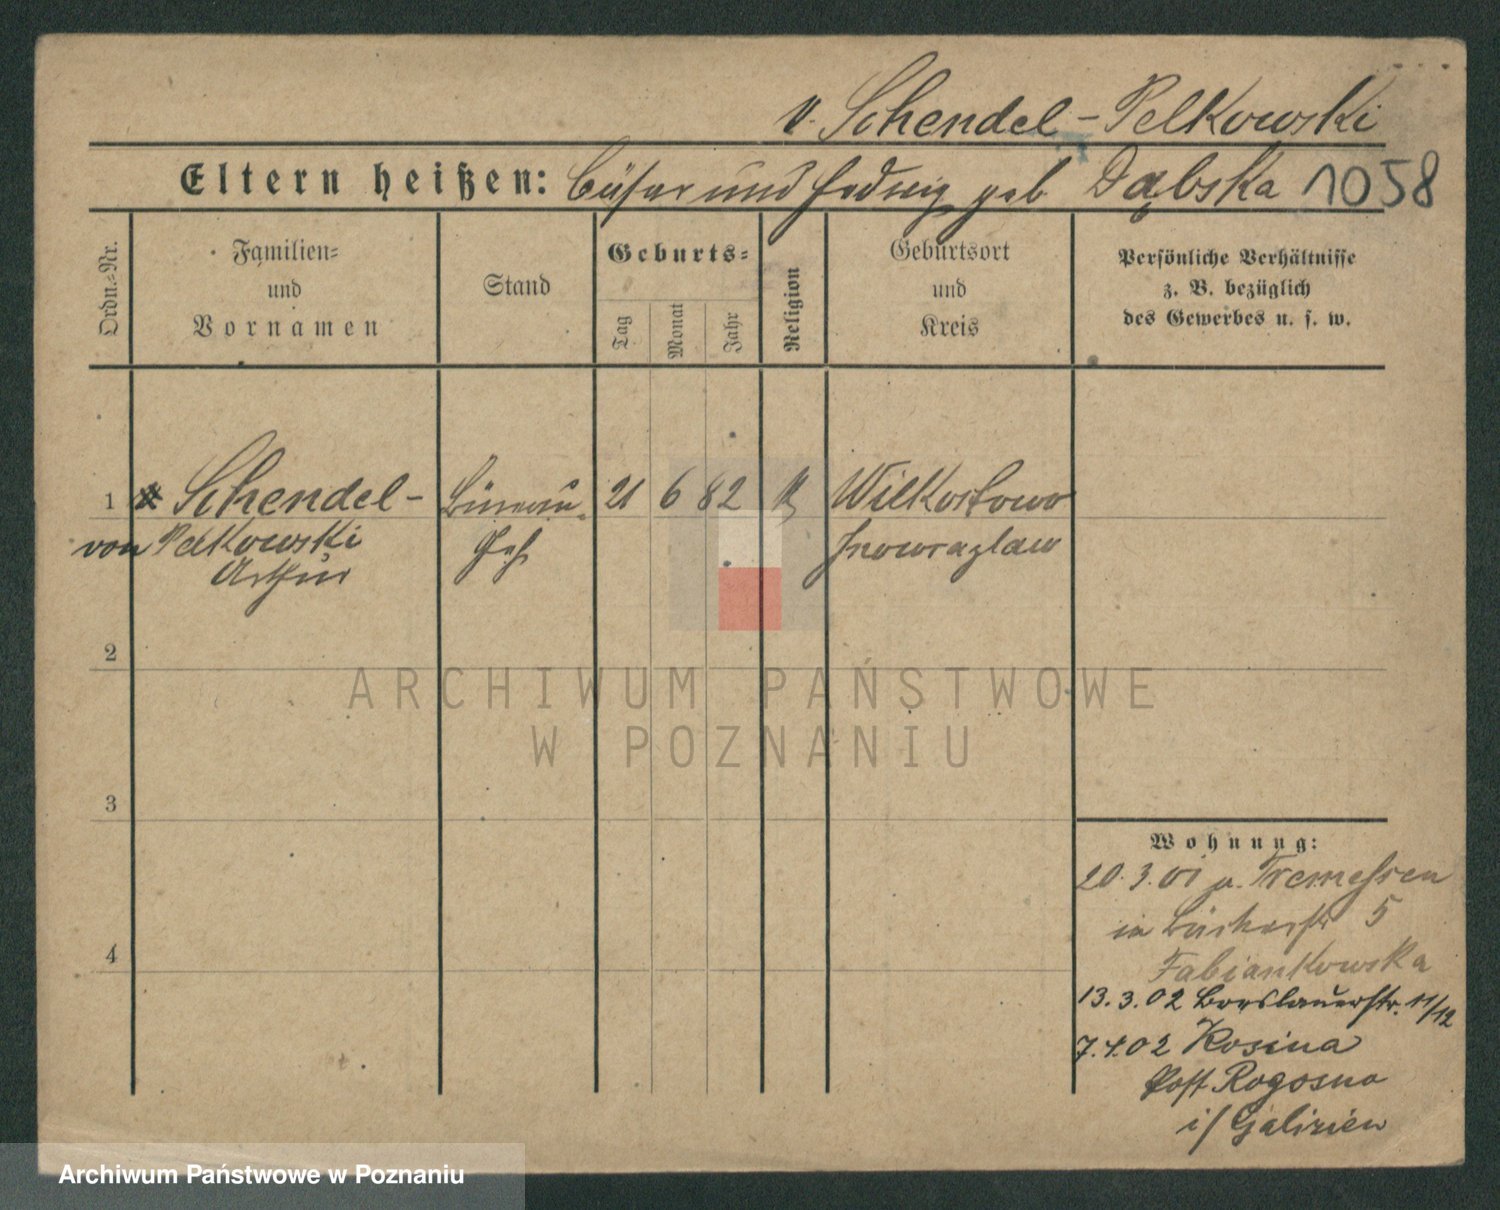 v. Schendel-Pelkowski
Eltern heißen: Cäsar und Hedwig geb Dąbska 1058
Ordn.-Nr.
Familien-
und
Vornamen
Stand
Geburts-
Tag
Monat
Jahr
Religion
Geburtsort
und
Kreis
Persönliche Verhältnisse
z. B. bezüglich
des Gewerbes u. s. w.
1 Schendel- Büreau- 21 6 82 K Wilkostowo
von Pelkowski Geh. Inowrazlaw
Arthur
2
ARCHIWUM PAŃSTWOWE
W POZNANIU
3
Wohnung:
20.3.01 v. Tremessen
in 5
Fabiankowska
4
13.3.02 Breslauerstr. 11/12
7.4.02 Rosina
Post Rogosno
i/ Galizien
Archiwum Państwowe w Poznaniu